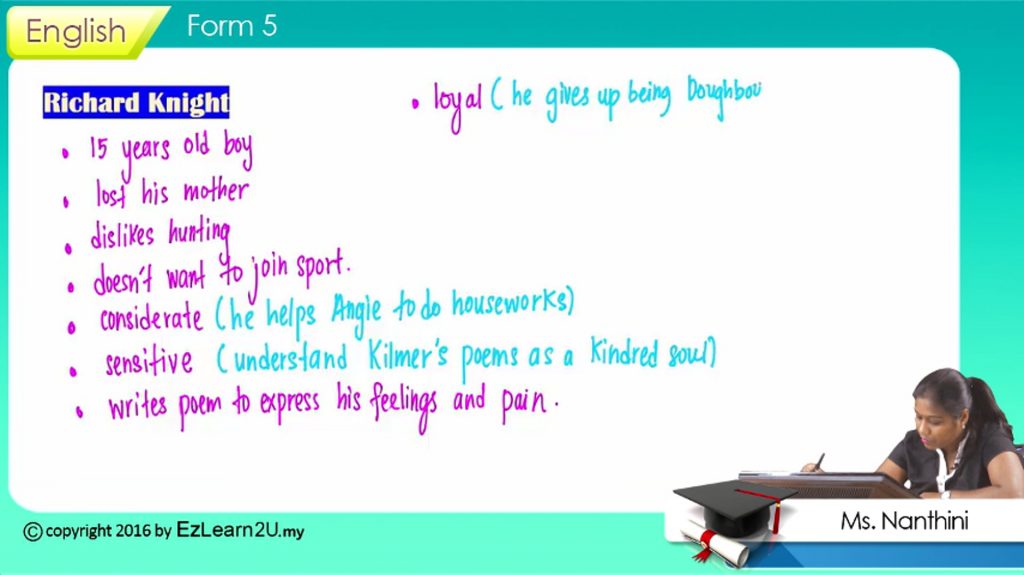 English
Form 5
Richard Knight
• 15 years old boy
• lost his mother
• dislikes hunting
• doesn't want to join sport.
• considerate (he helps Angie to do houseworks)
• sensitive (understand Kilmer's poems as a kindred soul)
• writes poem to express his feelings and pain.
• loyal (he gives up being Doughbou
© copyright 2016 by EzLearn2U.my
Ms. Nanthini